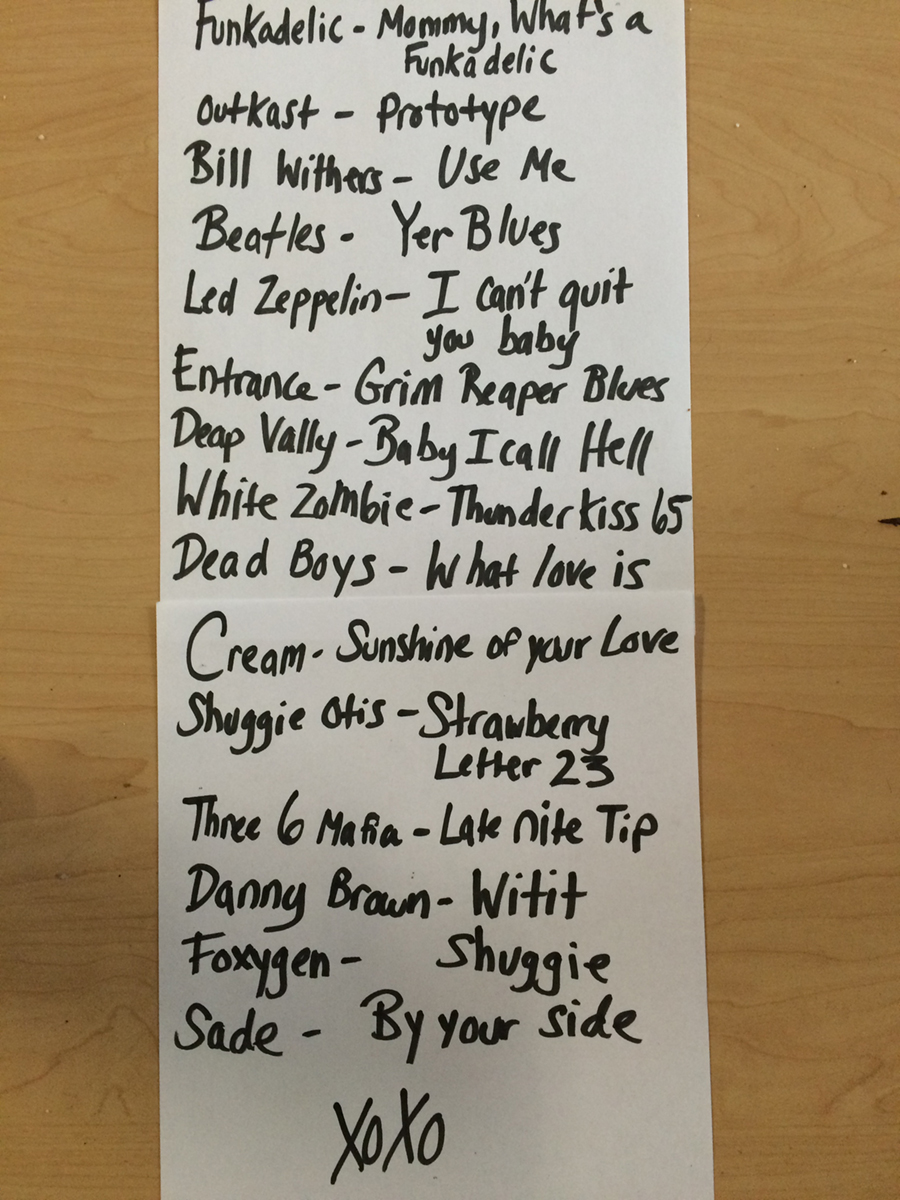 Funkadelic - Mommy, What's a
Funkadelic
Outkast - Prototype
Bill Withers - Use Me
Beatles - Yer Blues
Led Zeppelin - I can't quit
you baby
Entrance - Grim Reaper Blues
Deap Vally - Baby I call Hell
White Zombie - Thunder kiss 65
Dead Boys - What love is
Cream - Sunshine of your Love
Shuggie Otis - Strawberry
Letter 23
Three 6 Mafia - Late nite Tip
Danny Brown - Witit
Foxygen - Shuggie
Sade - By your side
XoXo